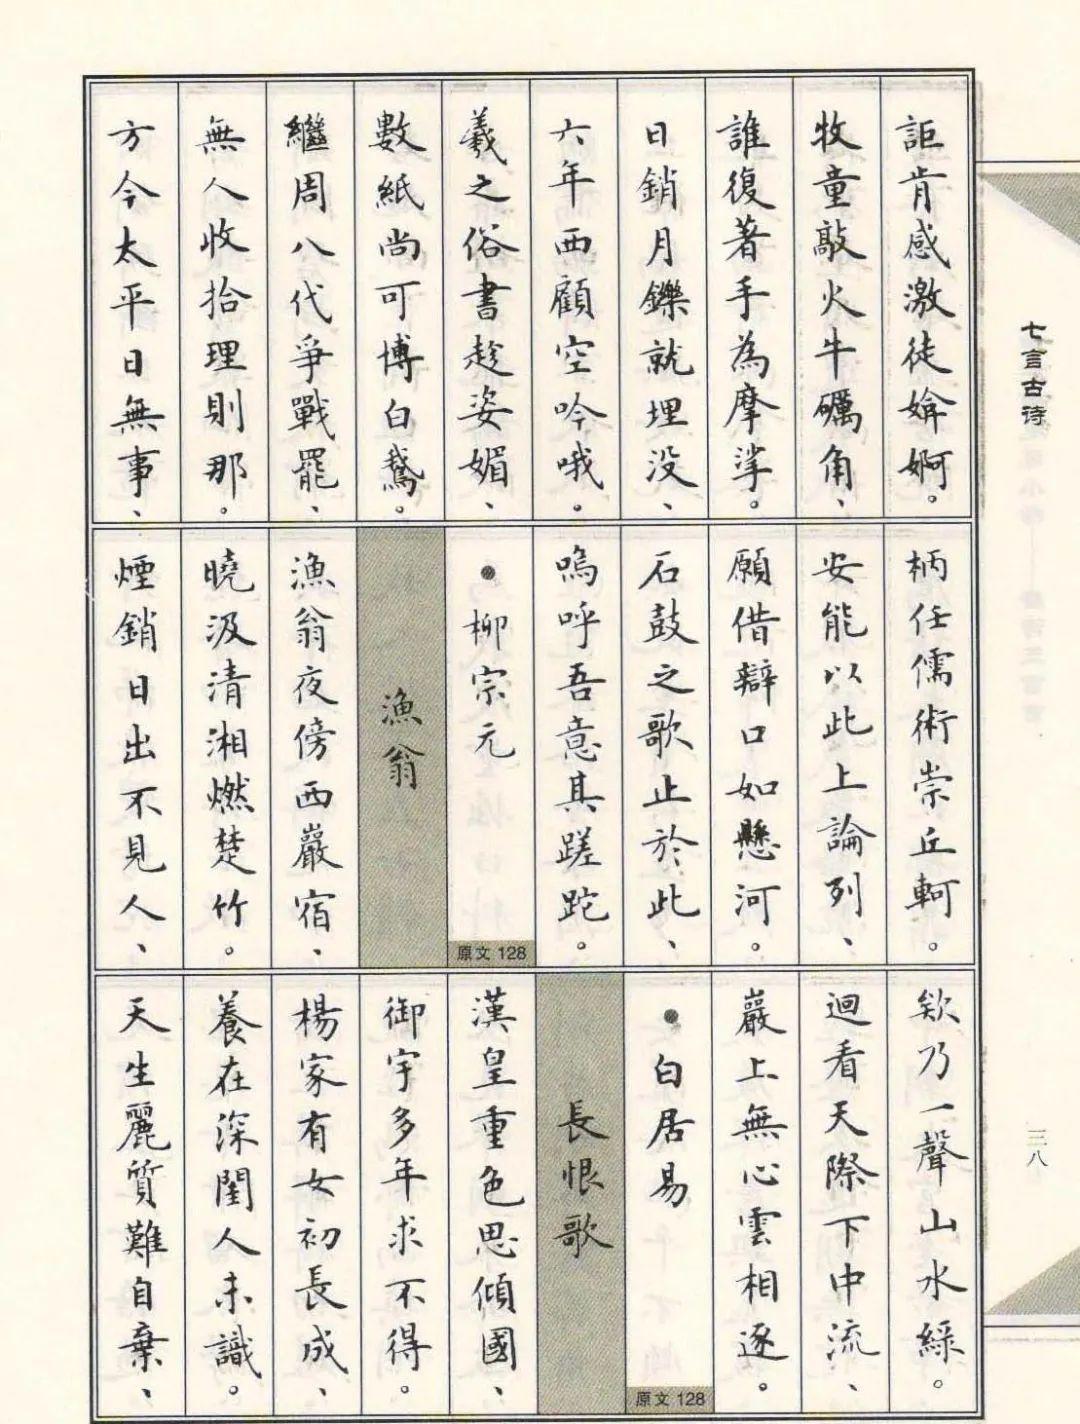 詎肯感激徒媕婀。
牧童敲火牛礪角、
誰復著手為摩挲。
日銷月鑠就埋没、
六年西顧空吟哦。
羲之俗書趁姿媚、
數紙尚可博白鵞。
繼周八代爭戰罷、
無人收拾理則那。
方今太平日無事、
柄任儒術崇丘軻。
安能以此上論列、
願借辯口如懸河。
石鼓之歌止於此、
嗚呼吾意其蹉跎。
●柳宗元
原文 128
漁翁
漁翁夜傍西巖宿、
曉汲清湘燃楚竹。
煙銷日出不見人、
欸乃一聲山水綠。
迴看天際下中流、
巖上無心雲相逐。
●白居易
原文 128
長恨歌
漢皇重色思傾國、
御宇多年求不得。
楊家有女初長成、
養在深閨人未識。
天生麗質難自棄、
七言古诗
三八